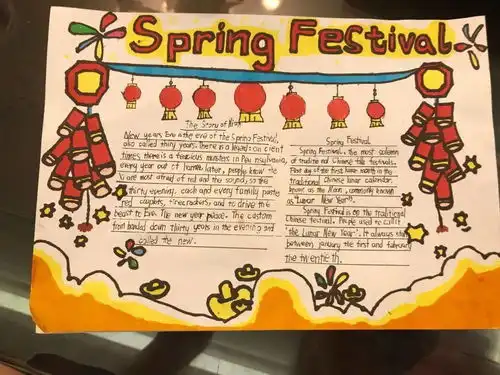 Spring Festival
The Story of Nian
New years Eve is the eve of the Spring Festival,
also called thirty years. There is a legend: an cient
times there is a
every year out of human, later, people know the
is one most afraid of red and the sound, so the
thirty opening, each and every family paste
red couplets, firecrackers, and to drive the
beast to Eve. The new year peace. The custom
from handed down thirty years in the evening and
called the new.
Spring Festival
Spring Festival, the most solemn
of traditional Chinese folk festivals.
First day of the first lunar month in the
traditional Chinese lunar calendar,
know as the Nian, commonly known
as "Lunar New Year".
Spring Festival is on the traditional
Chinese festival. People used to call it
the "Lunar New Year". It always
between january the first and february
the twentieth.